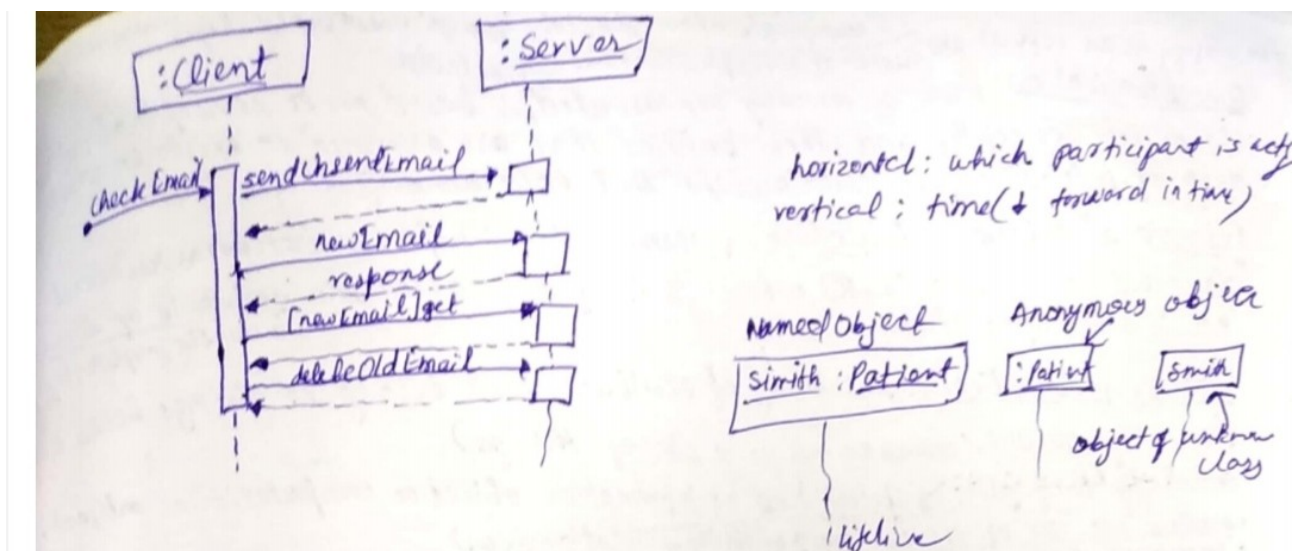 :Client
:Server
checkEmail
sendUnsentEmail
newEmail
response
[newEmail]get
deleteOldEmail
horizontal: which participant is
vertical: time(↓ forward in time)
Named Object
Simith :Patient
Anonymous object
:Patient
Smith
object of unknow
class
lifeline